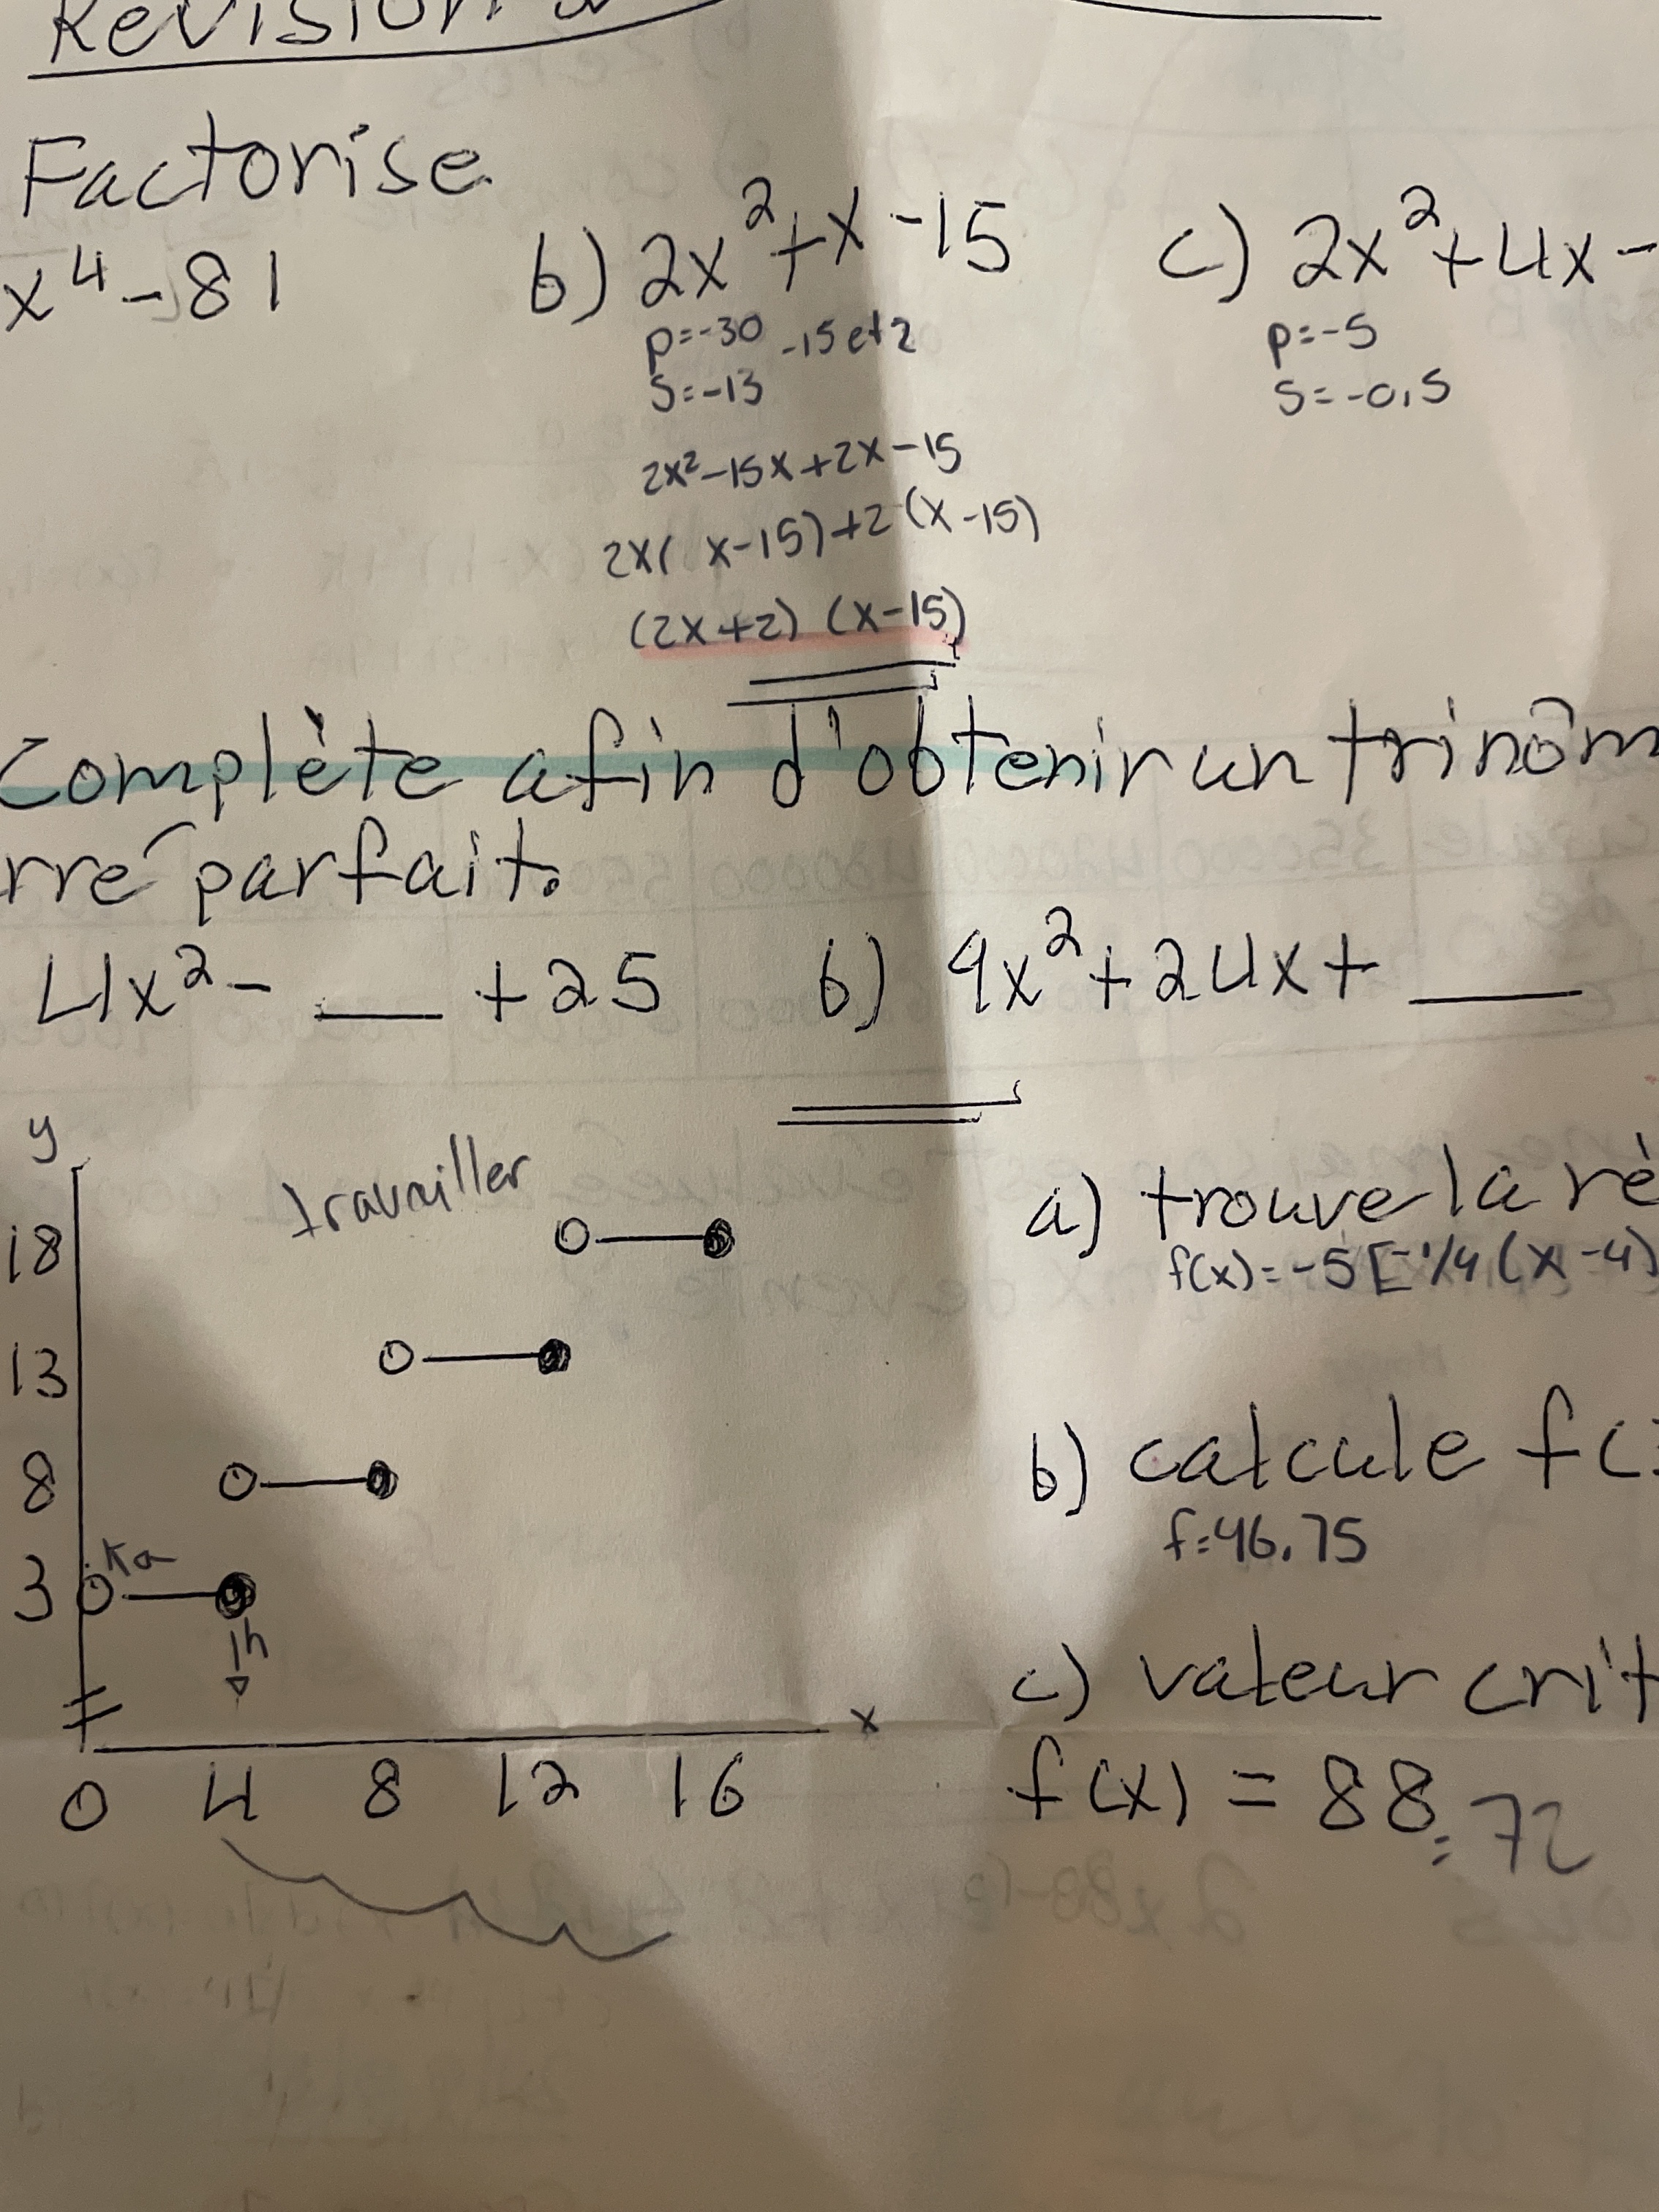 Revision
Factorise
x⁴-81 b) 2x²+x-15 c) 2x²+4x-
p=-30 -15 et 2 p=-5
S=-13 S=-0,5
2x²-15x+2x-15
2x( x-15)+2(x-15)
(2x+2) (x-15)
Complète afin d'obtenir un trinôm
rré parfait.
4x²- ___ +25 b) 9x²+24x+ ___
y
travailler
18
13
8
3
Ka
1h
x
0 4 8 12 16
a) trouve la rè
f(x)=-5[-1/4(x-4)
b) calcule f(
f=46.75
c) valeur crit
f(x) = 88
=72